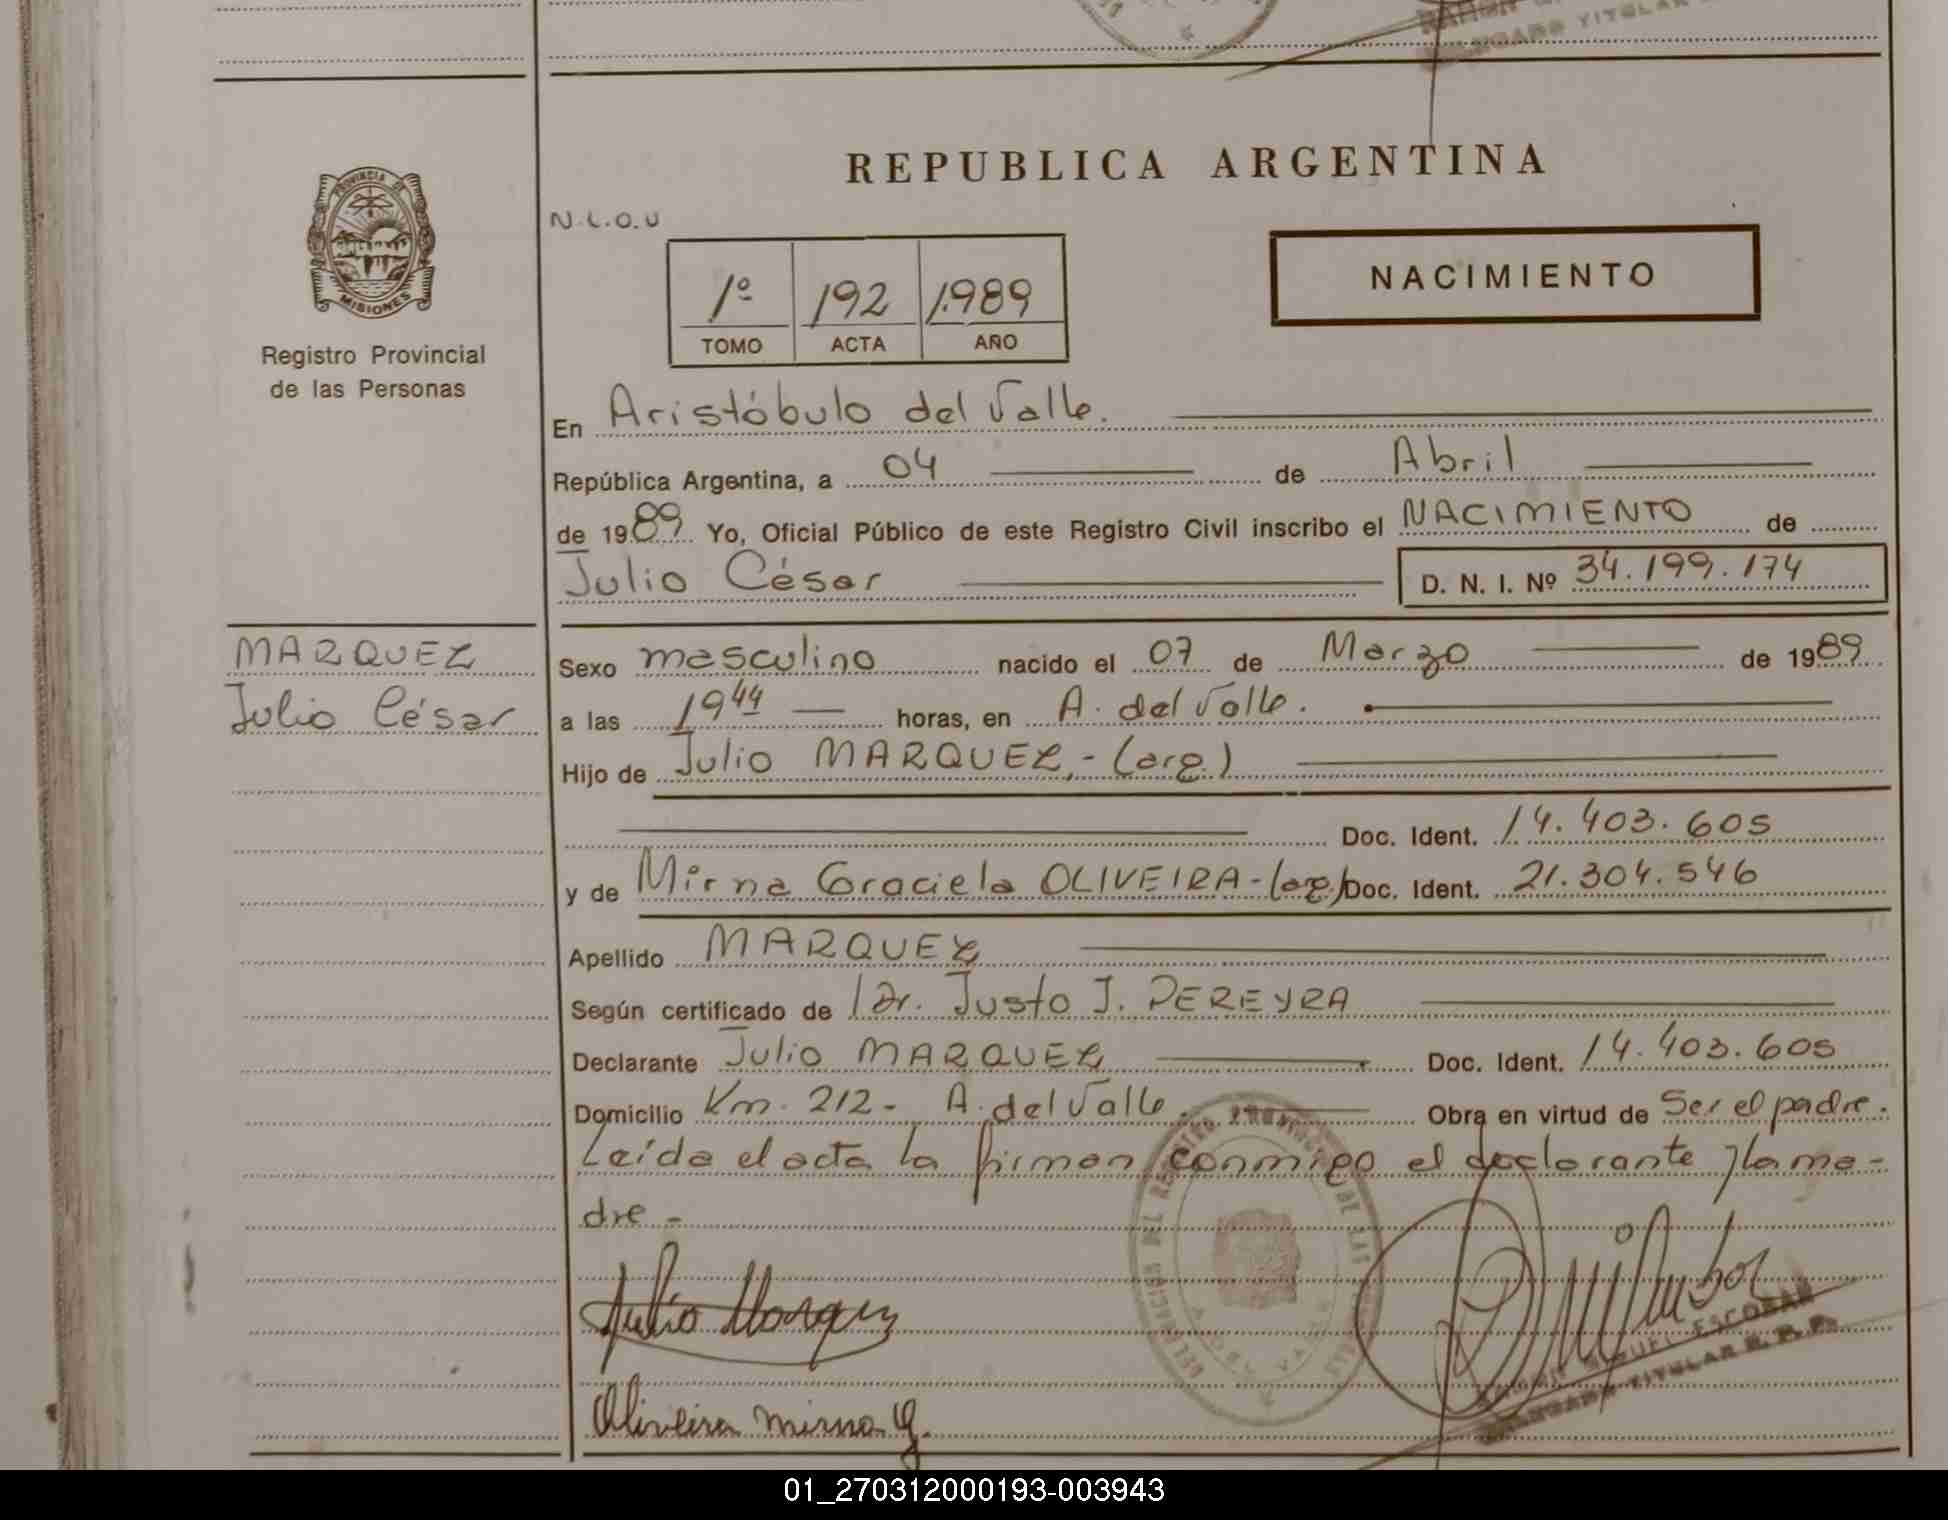 REPUBLICA ARGENTINA
PROVINCIA DE
MISIONES
Registro Provincial
de las Personas
N.L.O.U
NACIMIENTO
1º 192 1.989
TOMO ACTA AÑO
En Aristóbulo del Valle.
República Argentina, a 04 de Abril
de 1989 Yo, Oficial Público de este Registro Civil inscribo el NACIMIENTO de
Julio César D. N. I. Nº 34.199.174
MARQUEZ
Julio César
Sexo masculino nacido el 07 de Marzo de 1989
a las 19 44 horas, en A. del Valle.
Hijo de Julio MARQUEZ,- (arg.)
Doc. Ident. 14.403.605
y de Mirna Graciela OLIVEIRA-(arg.) Doc. Ident. 21.304.546
Apellido MARQUEZ
Según certificado de Dr. Justo J. PEREYRA
Declarante Julio MARQUEZ Doc. Ident. 14.403.605
Domicilio Km. 212- A. del Valle. Obra en virtud de Ser el padre.
Leída el acta la firman conmigo el declarante y la ma-
dre-
Julio Marquez
Oliveira Mirna G.
MIGUEL ESCOBAR
TITULAR R. P. P.
01_270312000193-003943